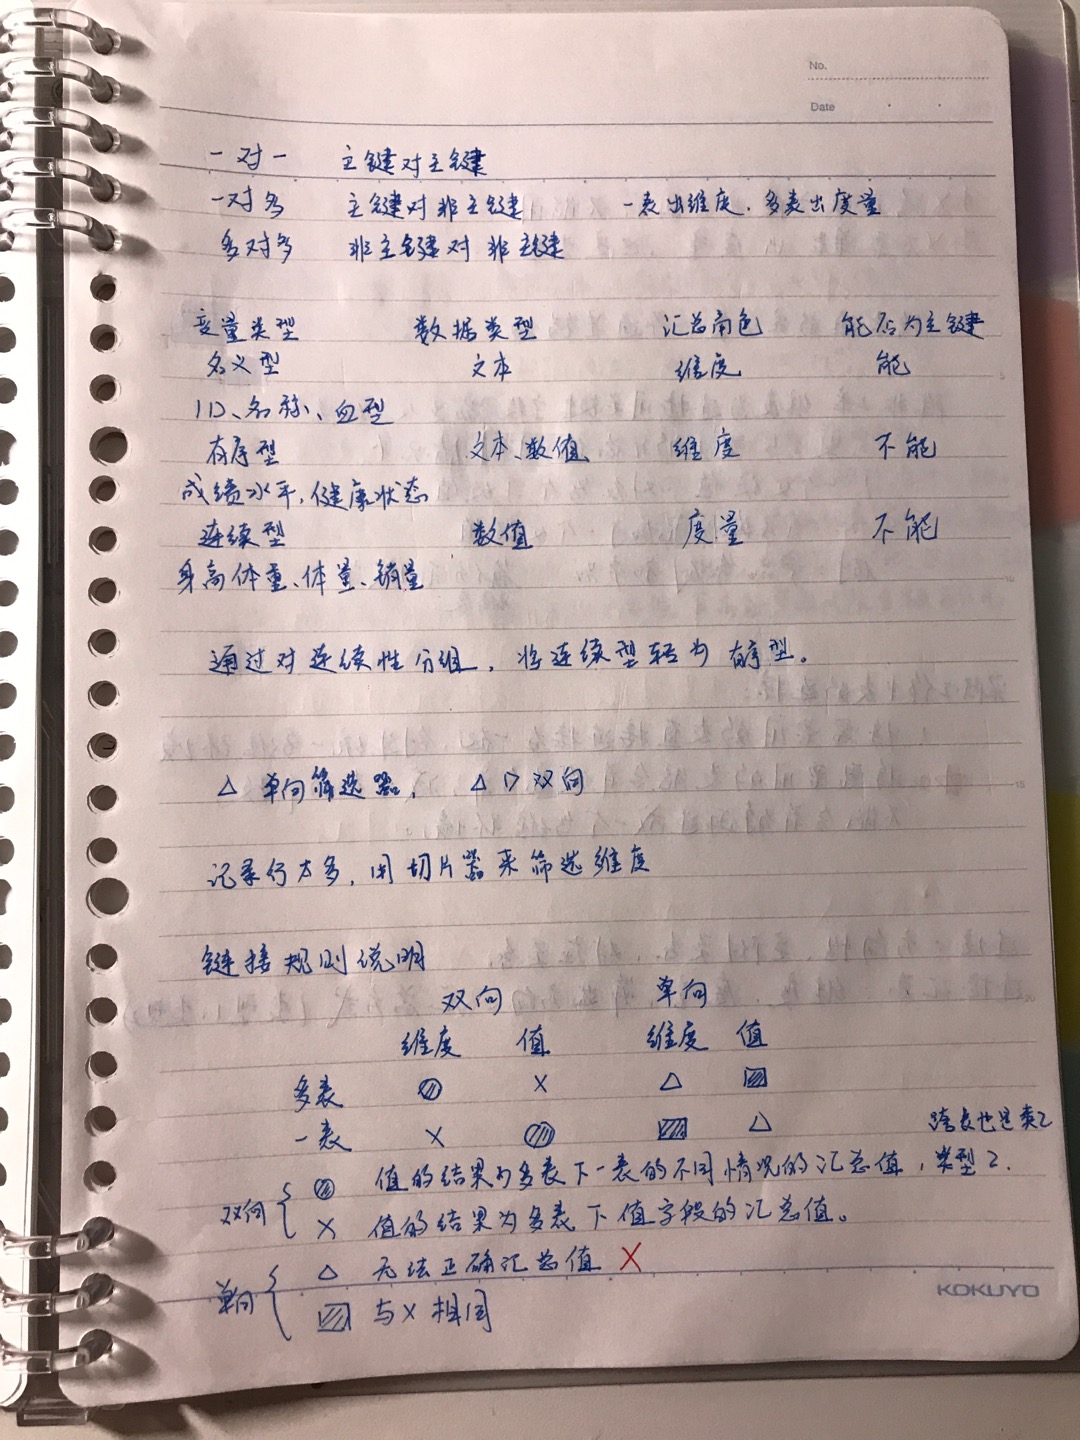 No.
Date
一对一 主键对主键
一对多 主键对非主键 一表出维度.多表出度量
多对多 非主键对非主键
变量类型 数据类型 汇总角色 能否为主键
名义型 文本 维度 能
ID、名称、血型
有序型 文本、数值 维度 不能
成绩水平,健康状态
连续型 数值 度量 不能
身高体重、体量、销量
通过对连续性分组,将连续型转为有序型。
△ 单向筛选器, △▷双向
记录行太多,用切片器来筛选维度
链接规则说明
双向 单向
维度 值 维度 值
多表 × △
一表 × △
跨表也是类2
双向 值的结果为多表下一表的不同情况的汇总值,类型2.
× 值的结果为多表下值字段的汇总值。
单向 △ 无法正确汇总值 ×
与×相同
KOKUYO